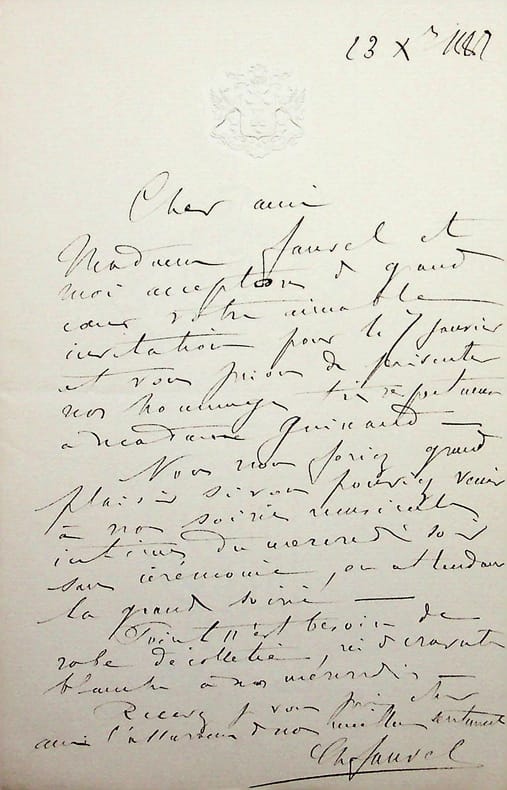 23 Xre 1887
Cher ami
Madame Fauvel et
moi acceptons de grand
cœur votre aimable
invitation pour le 7 Janvier
et vous prions de présenter
nos hommages très respectueux
à Madame Guinand —
Vous nous feriez grand
plaisir si vous pouviez venir
à nos soirées musicales
intimes du mercredi soir
sans cérémonie, en attendant
la grande soirée —
Point n'est besoin de
robe décolletée, ni de cravate
blanche à nos mercredis —
Recevez je vous prie cher
ami l'assurance de nos meilleurs sentiments
Ch Fauvel